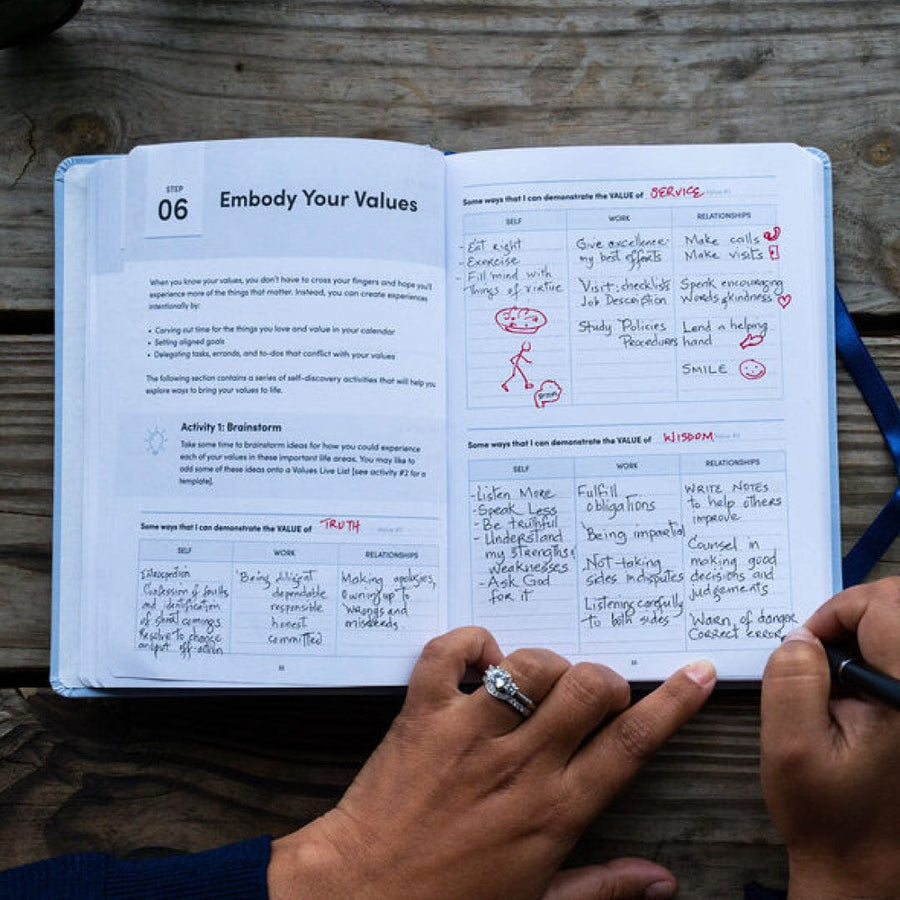 STEP
06
Embody Your Values
When you know your values, you don't have to cross your fingers and hope you'll
experience more of the things that matter. Instead, you can create experiences
intentionally by:
• Carving out time for the things you love and value in your calendar
• Setting aligned goals
• Delegating tasks, errands, and to-dos that conflict with your values
The following section contains a series of self-discovery activities that will help you
explore ways to bring your values to life.
Activity 1: Brainstorm
Take some time to brainstorm ideas for how you could experience
each of your values in these important life areas. You may like to
add some of these ideas onto a Values Live List [see activity #2 for a
template].
Some ways that I can demonstrate the VALUE of TRUTH
SELF WORK RELATIONSHIPS
Confession of faults
and identification
of short comings
Resolve to change
and put off action
Being diligent
dependable
responsible
honest
committed
Making apologies,
Owning up to
wrongs and
misdeeds
Some ways that I can demonstrate the VALUE of SERVICE
SELF WORK RELATIONSHIPS
- Eat right
- Exercise
- Fill mind with
things of virtue
Brain
Give excellence
my best efforts
Visit: checklists
Job Description
Study Policies
Procedures
Make calls
Make visits
Speak encouraging
Words of kindness
Lend a helping
hand
SMILE
Some ways that I can demonstrate the VALUE of WISDOM
SELF WORK RELATIONSHIPS
- Listen More
- Speak Less
- Be truthful
- Understand
my strengths
weaknesses
- Ask God
for it
Fulfill
obligations
Being impartial
Not taking
sides in disputes
Listening carefully
to both sides
WRITE NOTES
to help others
improve
Counsel in
making good
decisions and
judgements
Warn of danger
Correct error